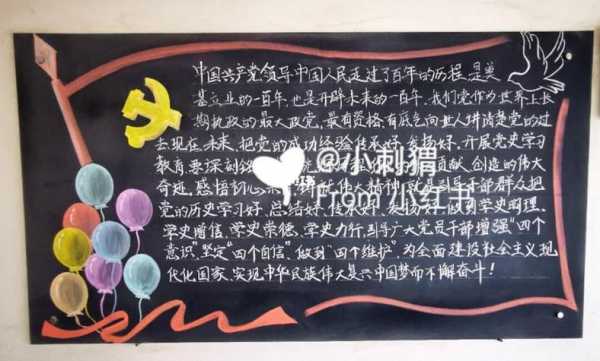 中国共产党领导中国人民走过了百年的历程,是奠
基立业的一百年,也是开辟未来的一百年。我们党作为世界上长
期执政的最大政党,最有资格、有底气向世人讲清楚党的过
去现在未来,把党的成功经验传承好、发扬好。开展党史学习
教育要深刻
贡献、创造的伟大
奇迹,感悟初心
伟大精神
干部群众把
党的历史学习好、总结好、传承好、发扬好,做到学史明理、
学史增信、学史崇德、学史力行,引导广大党员干部增强“四个
意识”坚定“四个自信”、做到“四个维护”,为全面建设社会主义现
代化国家、实现中华民族伟大复兴中国梦而不懈奋斗!
@小刺猬
From 小红书